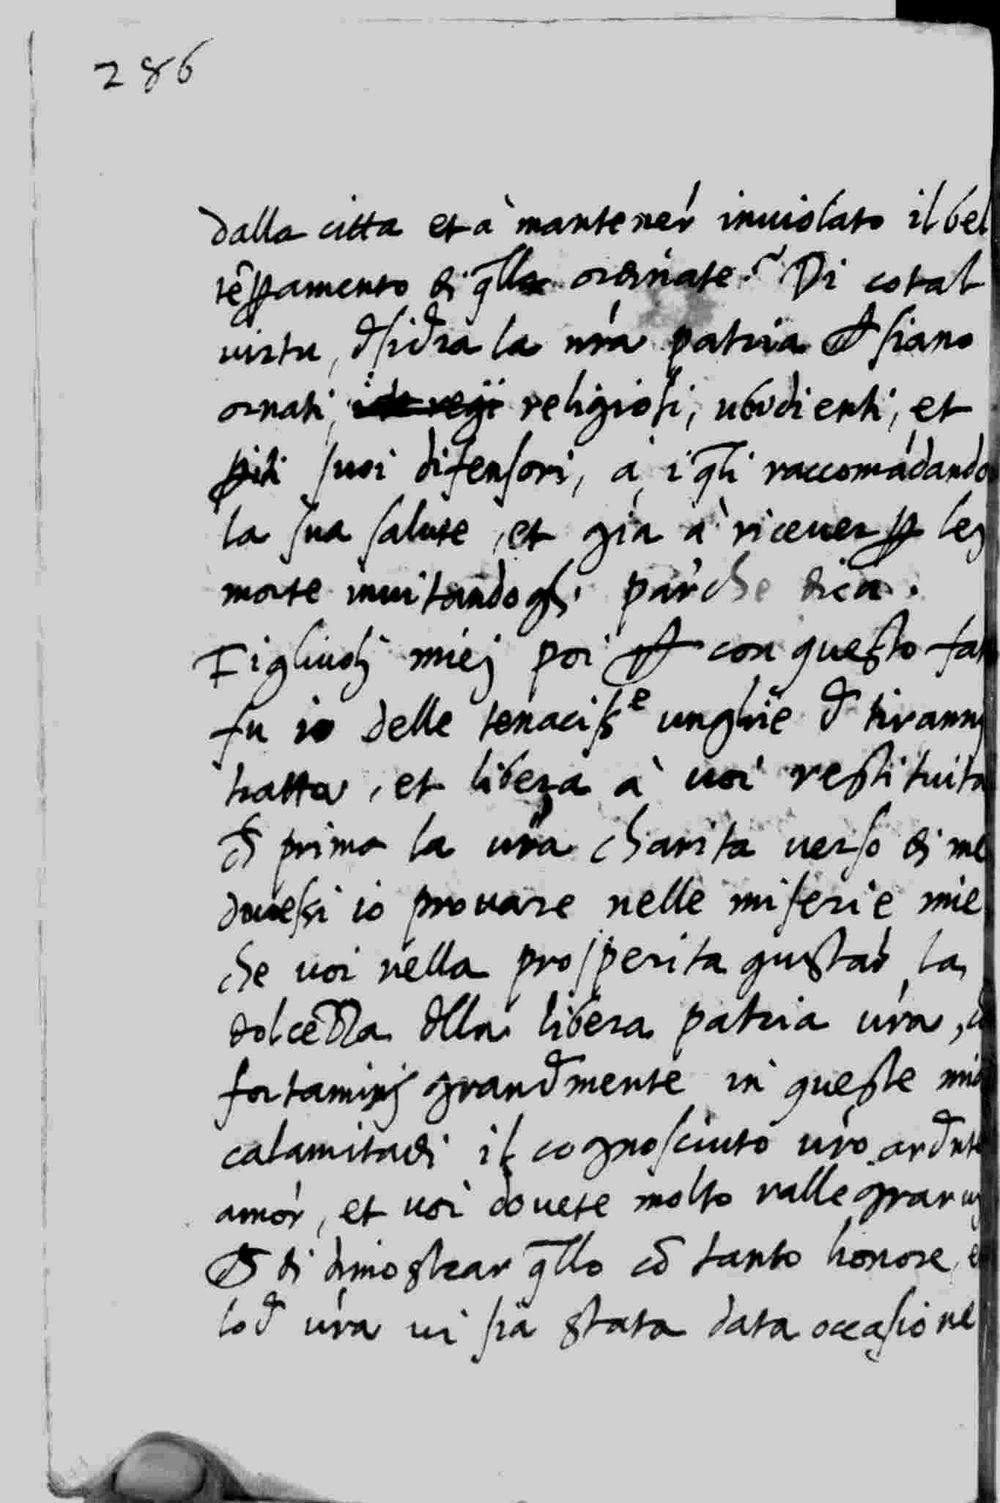 286
dalla citta et à mantener inuiolato il bel
tẽpramento di q̃lla ordinate. Di cotal
virtu, dsidra la ura patria siano
ornati, religiosi, ubidienti, et
suoi difensori, à i q̃li raccomãdando
la sua salute, et già à riceuer lej
morte inuitandogli par che dica.
Figliuoli miej poi con questo
fu io delle tenaciss^e unghie d tiranni
tratta, et libera à uoi restituita
prima la ura charita uerso di me
douessi io prouare nelle miserie mie
che uoi nella prosperita gustar la
dolcezza dlla libera patria ura,
grandmente in queste
calamitadi il cognosciuto uro ardnte
amor, et uoi douete molto rallegrarui
di dimostrar q̃llo cõ tanto honore
lod ura ui sia stata data occasione